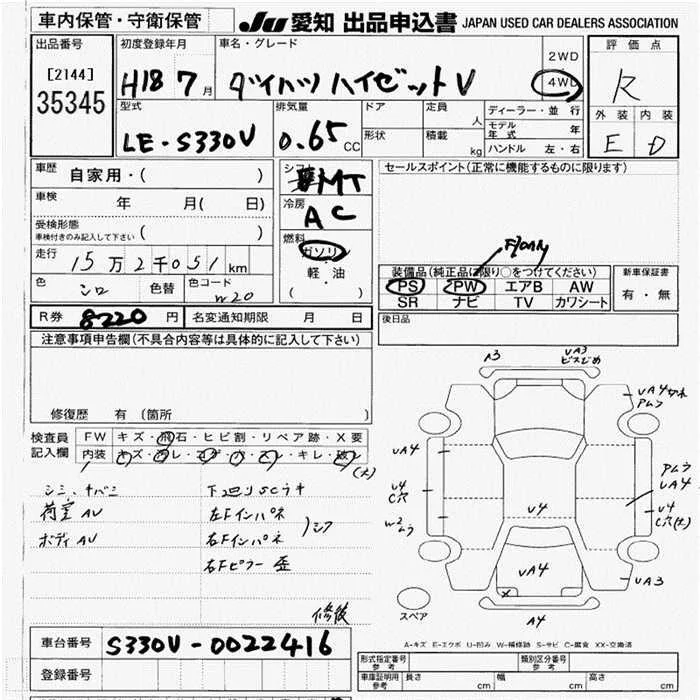 車内保管・守衛保管 JU 愛知 出品申込書 JAPAN USED CAR DEALERS ASSOCIATION
出品番号 初度登録年月 車名・グレード 2WD 評価点
[2144] H18 7月 ダイハツ ハイゼットV 4WD R
35345 型式 排気量 ドア 定員 人 ディーラー・並行 外装 内装
モデル年式 年
LE-S330V 0.65CC 形状 積載 kg ハンドル 左・右 E D
車歴 自家用・( ) シフト MT セールスポイント(正常に機能するものに限ります)
車検 年 月( 日) 冷房 AC
受検形態 ( )
車検付きのみ記入して下さい
燃料 ガソリン
走行 15万2千051km 軽・油 装備品(純正品に限り○をつけてください) 新車保証書
色 シロ 色替 色コード W20 ( ) PS PW エアB AW 有・無
SR ナビ TV カワシート
R券 8220円 名変通知期限 月 日 後日品
注意事項申告欄(不具合内容等は具体的に記入して下さい)
A3 UA3 ビスどめ
UA4
修復歴 有 (箇所
検査員 FW キズ・飛石・ヒビ割・リペア跡・X要
記入欄 内装 キズ・キレ
(大)
UA4 U4 C穴 W2 ムラ
U4 UA4
Pムラ UA4
U4 C穴(大)
UA3
A4
スペア
シミ、ヤバミ 下回りSCサキ
荷室AU 左Fインパネ
ボディAU 右Fインパネ
右Fピラー 歪
修後
A-キズ E-エクボ U-凹み W-補修跡 S-サビ C-腐食 XX-交換済
車台番号 S330V-0022416
登録番号 型式指定番号 参考 類別区分番号 参考
車庫証明用 参考 長さ cm 幅 cm 高さ cm